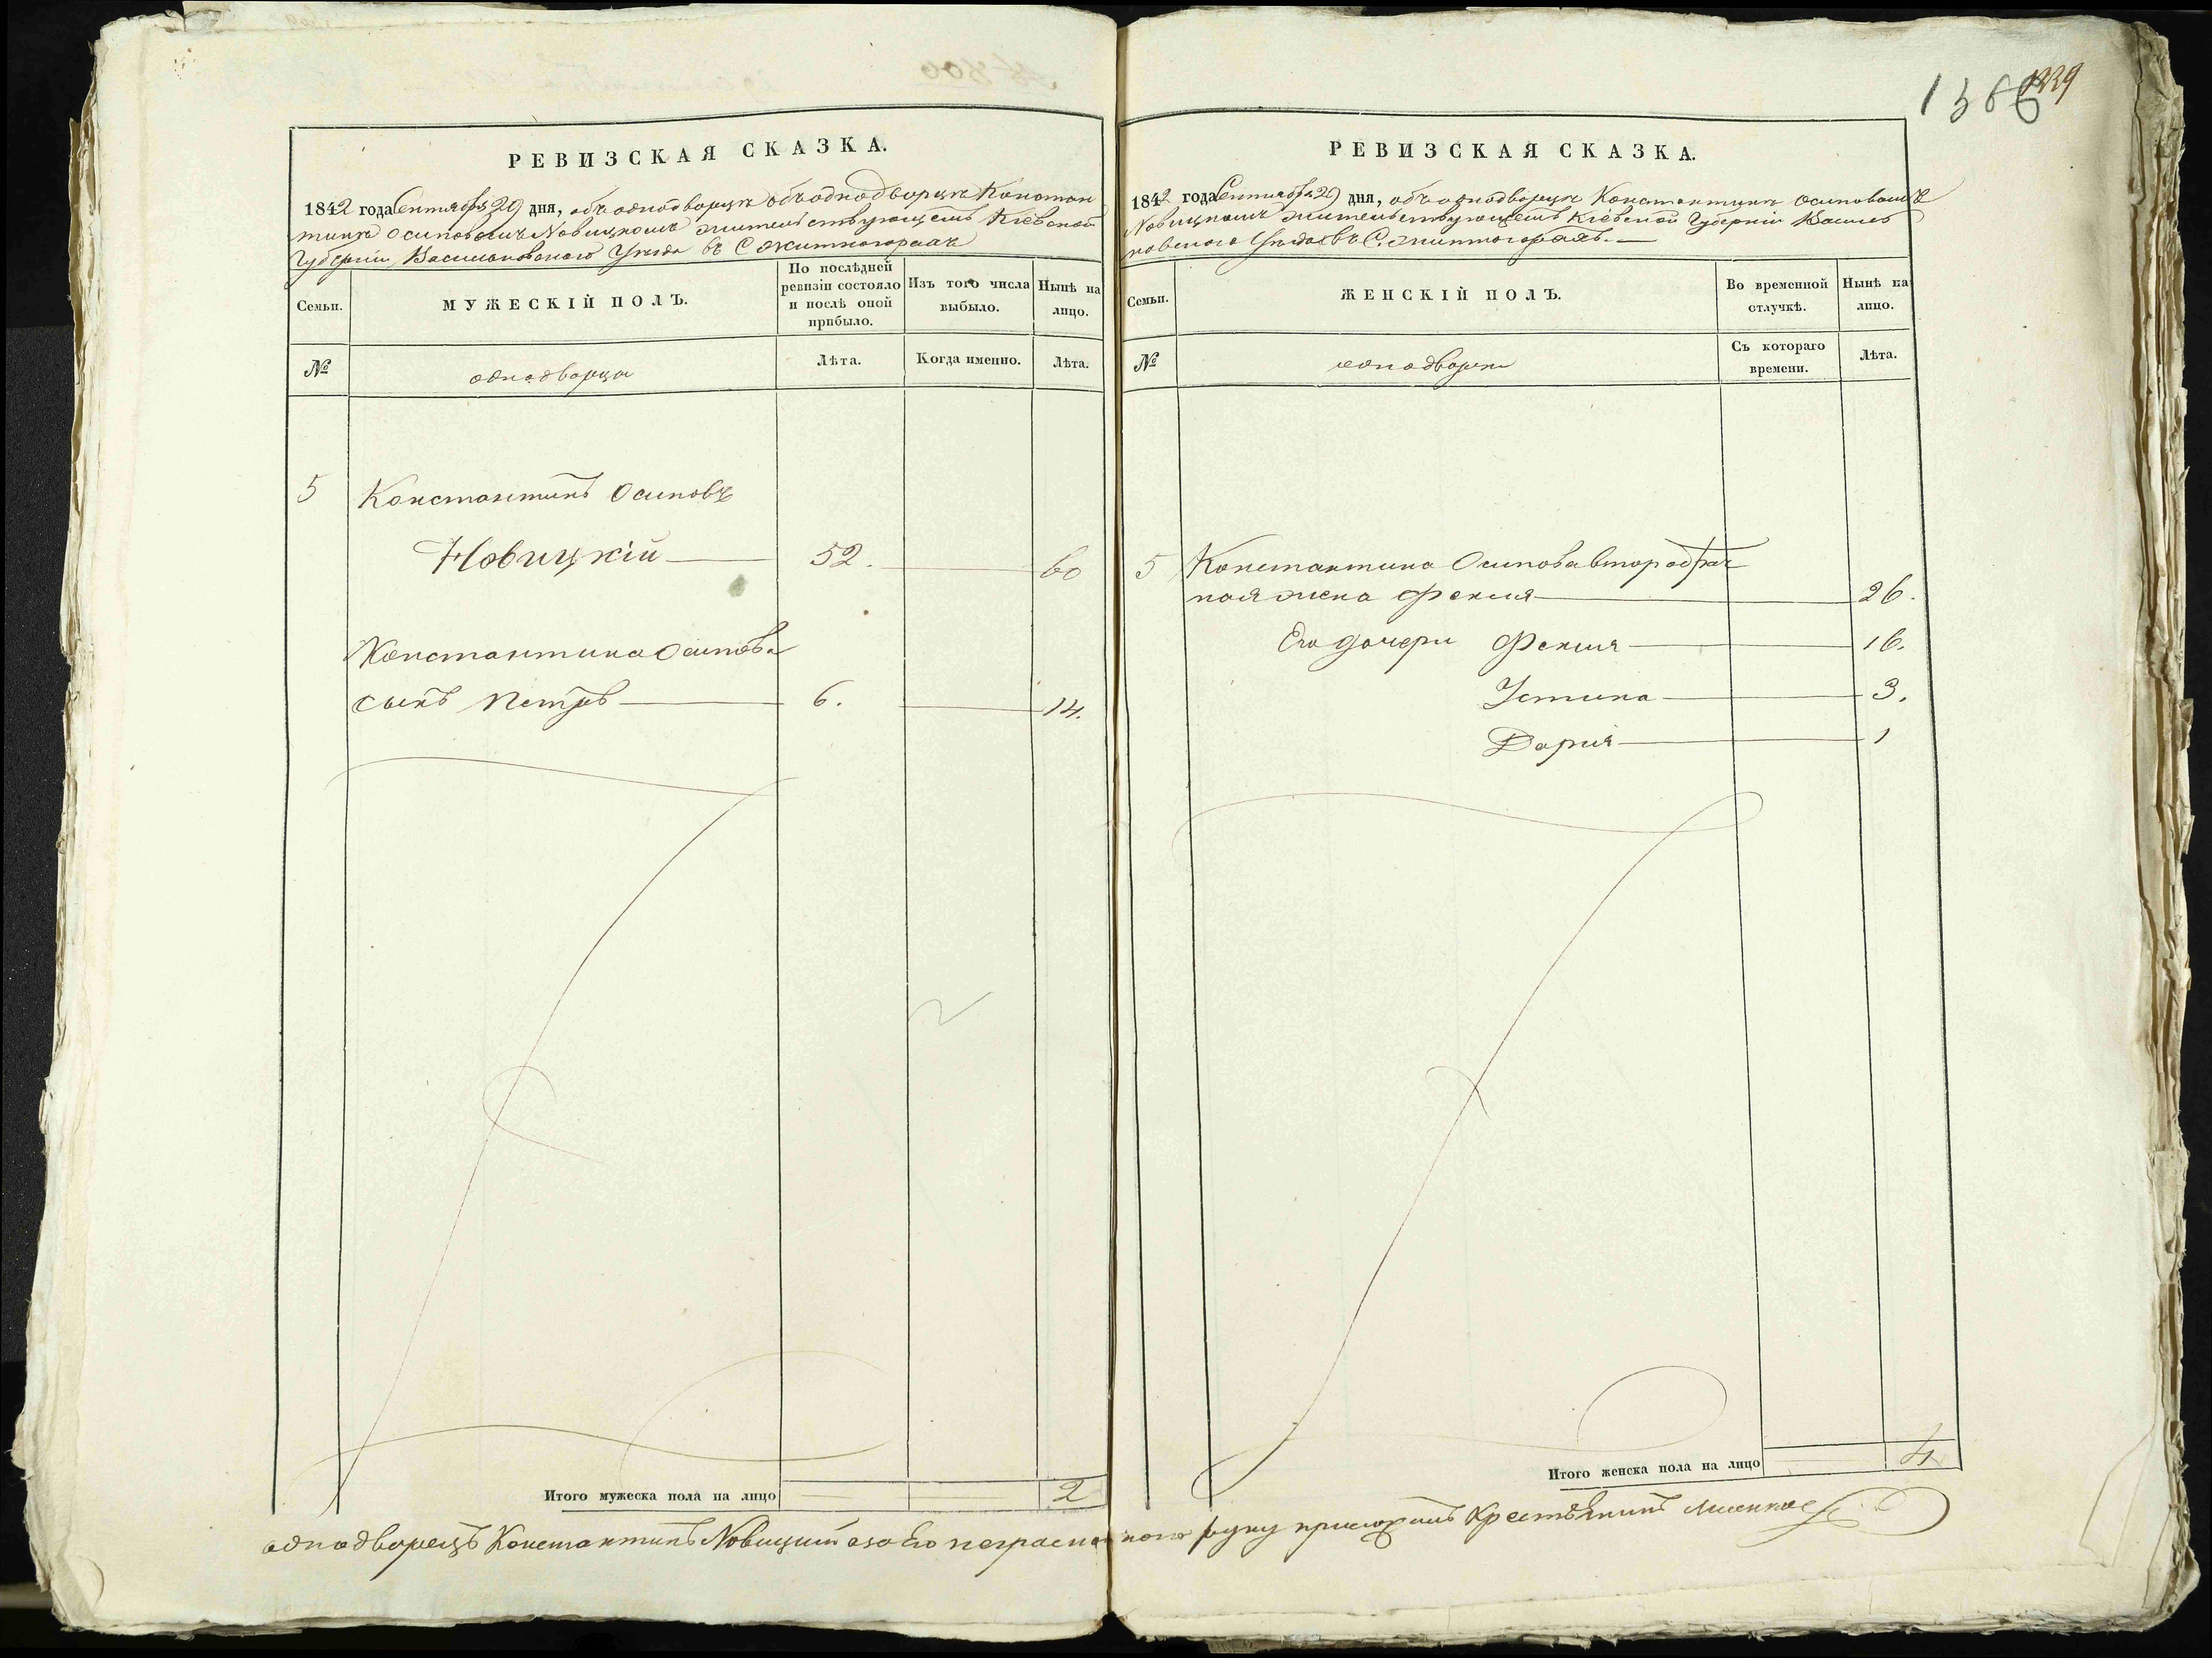 РЕВИЗСКАЯ СКАЗКА.
1842 года Сентября 29 дня, объ однодворцѣ объ однодворцѣ Констан
тинѣ Осиповомъ Новицкомъ жительствующемъ Кіевской
Губерніи Васильковскаго Уѣзда въ С Житногорахъ
Семьи.
МУЖЕСКІЙ ПОЛЪ.
По послѣдней ревизіи состояло и послѣ оной прибыло.
Изъ того числа выбыло.
Нынѣ на лицо.
№
однодворцы
Лѣта.
Когда именно.
Лѣта.
5 Константинъ Осиповъ
Новицкій 52. 60
Константина Осипова
сынъ Петръ 6. 14.
Итого мужеска пола на лицо 2
1366
1339
РЕВИЗСКАЯ СКАЗКА.
1842 года Сентября 29 дня, объ однодворцѣ Константинѣ Осиповомъ
Новицкомъ жительствующемъ Кіевской Губерніи Василь
ковского Уѣзда въ С. Житногорахъ.
Семьи.
ЖЕНСКІЙ ПОЛЪ.
Во временной отлучкѣ.
Нынѣ на лицо.
№
однодворки
Съ котораго времени.
Лѣта.
5 Константина Осипова второбрач
ная жена Фекла 26.
Его дочери Фекла 16.
Устина 3.
Дарія 1
Итого женска пола на лицо 4
однодворецъ Константинъ Новицкий а за Его неграмотного руку приложилъ Крестьянинъ